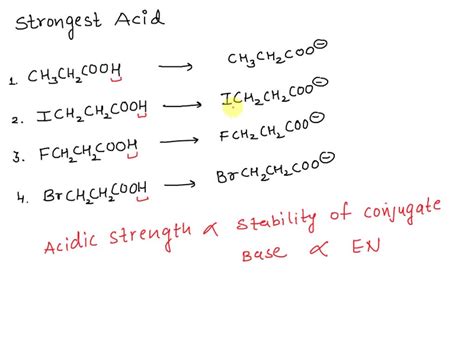 Strongest Acid
1. CH₃CH₂COOH ⟶ CH₃CH₂COO⊖
2. ICH₂CH₂COOH ⟶ ICH₂CH₂COO⊖
3. FCH₂CH₂COOH ⟶ FCH₂CH₂COO⊖
4. BrCH₂CH₂COOH ⟶ BrCH₂CH₂COO⊖
Acidic strength ∝ stability of conjugate
Base ∝ EN